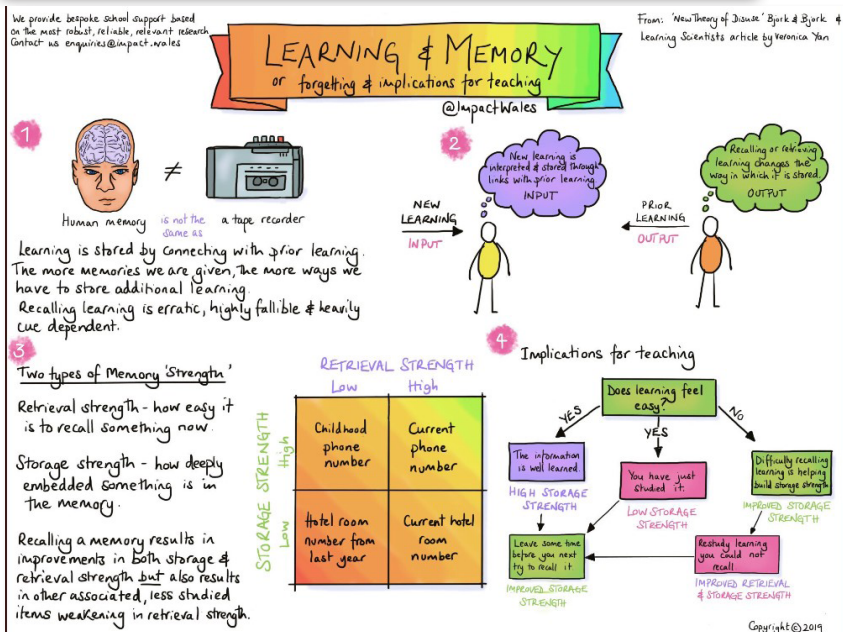 We provide bespoke school support based
on the most robust, reliable, relevant research
Contact us enquiries@impact.wales
From: 'New Theory of Disuse' Bjork & Bjork &
Learning Scientists article by Veronica Yan
LEARNING & MEMORY
or forgetting & implications for teaching
@ImpactWales
1
Human memory
is not the
same as
a tape recorder
≠
Learning is stored by connecting with prior learning.
The more memories we are given, the more ways we
have to store additional learning.
Recalling learning is erratic, highly fallible & heavily
cue dependent.
2
NEW
LEARNING
INPUT
New learning is
interpreted & stored through
links with prior learning.
INPUT
PRIOR
LEARNING
OUTPUT
Recalling or retrieving
learning changes the
way in which it is stored.
OUTPUT
3
Two types of Memory 'Strength'
Retrieval strength - how easy it
is to recall something now.
Storage strength - how deeply
embedded something is in
the memory.
Recalling a memory results in
improvements in both storage &
retrieval strength but also results
in other associated, less studied
items weakening in retrieval strength.
RETRIEVAL STRENGTH
Low
High
STORAGE STRENGTH
High
Low
Childhood
phone
number
Current
phone
number
Hotel room
number from
last year
Current hotel
room
number
4
Implications for teaching
Does learning feel
easy?
YES
YES
NO
The information
is well learned.
HIGH STORAGE
STRENGTH
You have just
studied it.
LOW STORAGE
STRENGTH
Difficulty recalling
learning is helping
build storage strength
IMPROVED STORAGE
STRENGTH
Leave some time
before you next
try to recall it
IMPROVED STORAGE
STRENGTH
Restudy learning
you could not
recall
IMPROVED RETRIEVAL
& STORAGE STRENGTH
Copyright © 2019